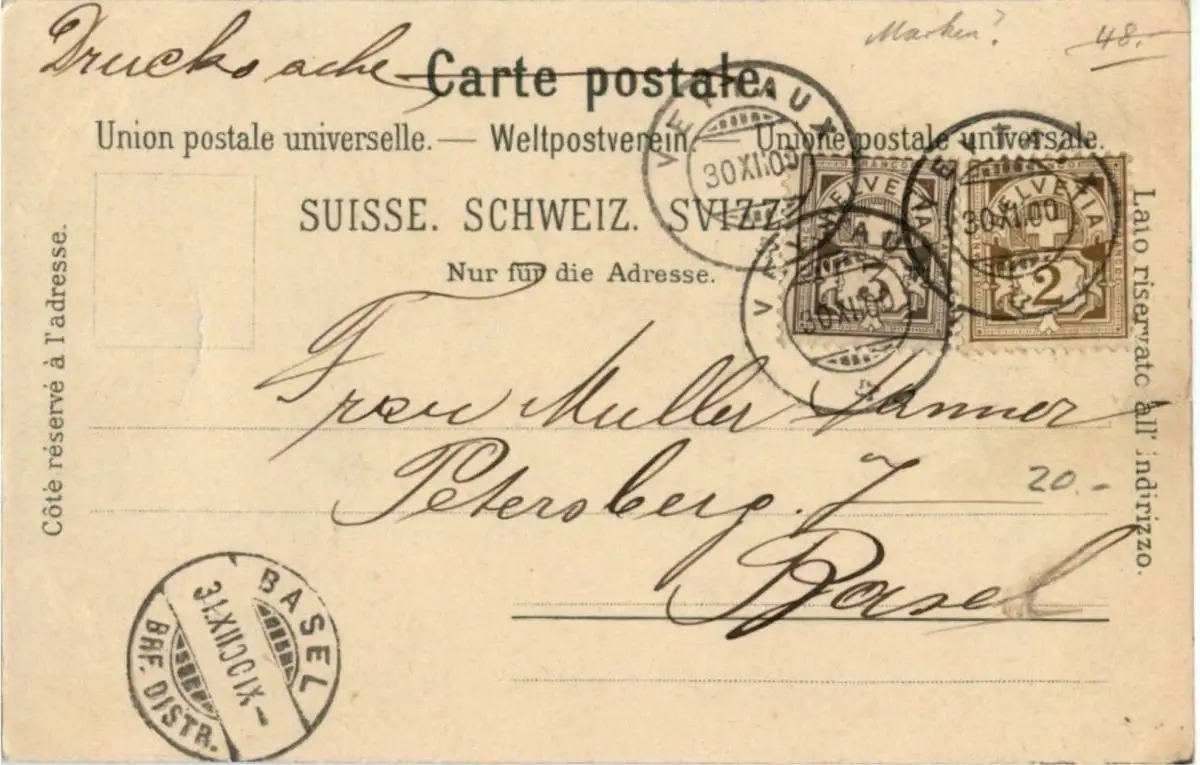 Drucksache Carte postale. Marken? 48.-
Union postale universelle. — Weltpostverein. — Unione postale universale.
SUISSE. SCHWEIZ. SVIZZ
Nur für die Adresse.
Côtè réservé à l'adresse.
Lato riservato all' indirizzo.
VEYTAUX
30 XII.00
VEYTAUX
30 XII.00
VEYTAUX
30 XII.00
FRANCO
HELVETIA
3
HELVETIA
2
Frau Muller
Petersberg. 7
20.-
Basel
BASEL
31.XII.00 IX-
BRF. DISTR.